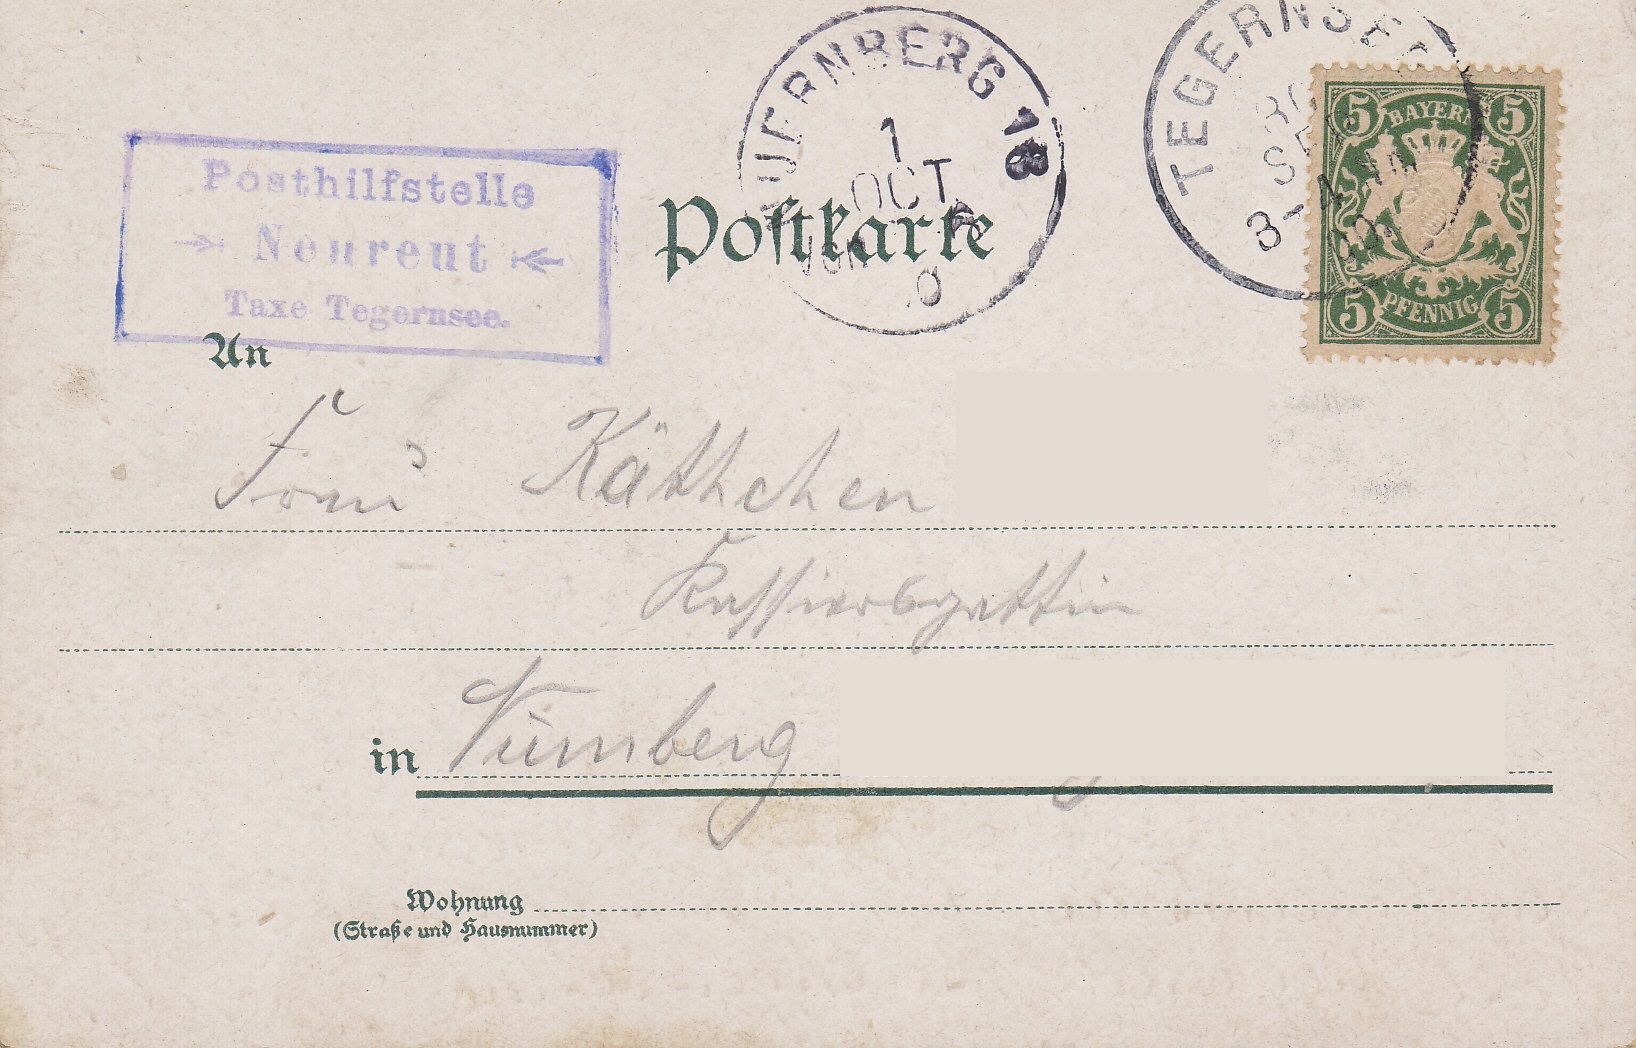 NUERNBERG 18
1
OCT
TEGERNSEE
30
SEP
3-4 NM
5 BAYERN 5
5 PFENNIG 5
Posthilfstelle
Neureut
Taxe Tegernsee.
Postkarte
An
Frau Käthchen
Kassiersgattin
in Nürnberg
Wohnung
(Straße und Hausnummer)